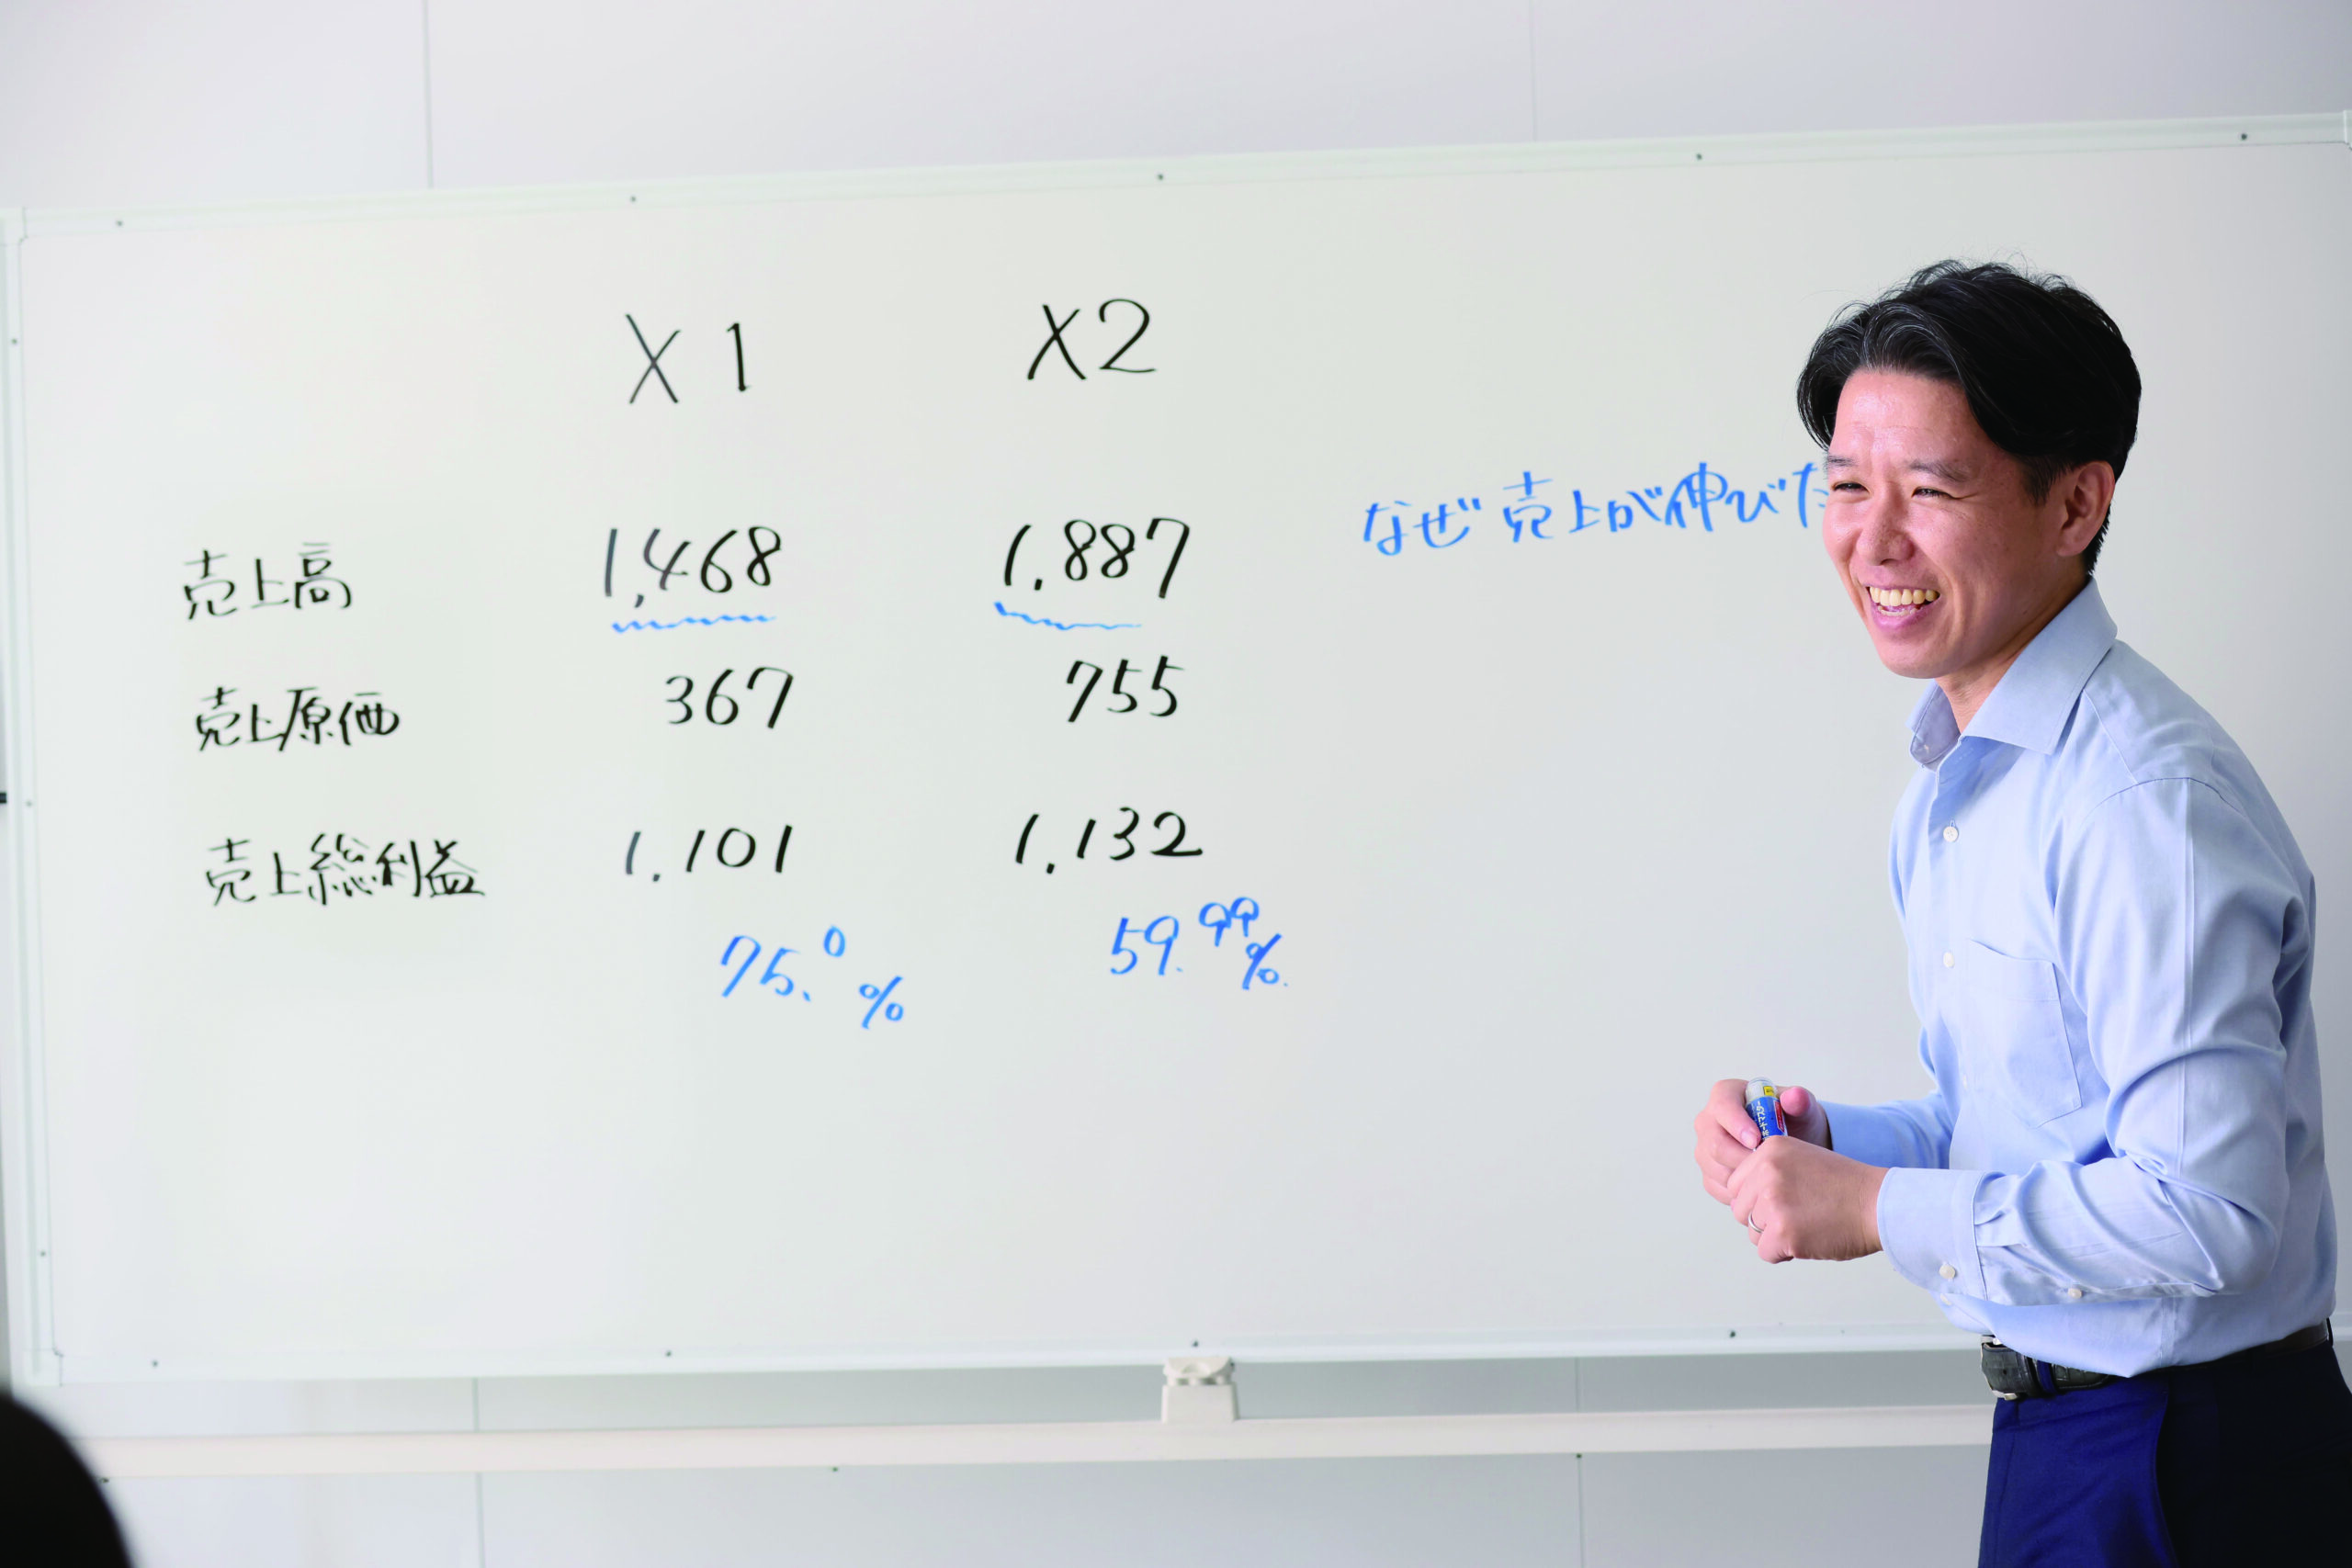 X1 X2
売上高 1,468 1.887 なぜ売上が伸びた
売上原価 367 755
売上総利益 1.101 1.132
75.0% 59.99%